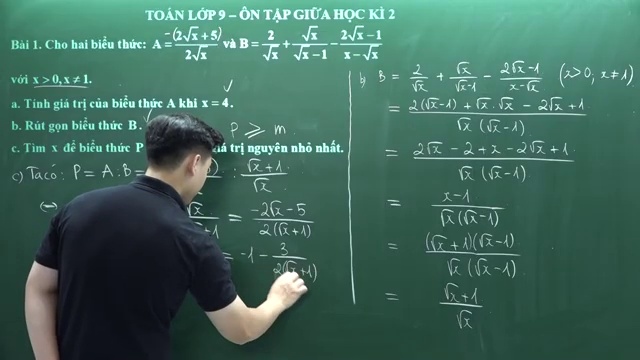 TOÁN LỚP 9 – ÔN TẬP GIỮA HỌC KÌ 2
Bài 1. Cho hai biểu thức: A = -(2√x + 5) / 2√x và B = 2/√x + √x/(√x − 1) − (2√x − 1)/(x − √x)
với x > 0, x ≠ 1.
a. Tính giá trị của biểu thức A khi x = 4.
b. Rút gọn biểu thức B.
P ⩾ m
c. Tìm x để biểu thức P giá trị nguyên nhỏ nhất.
c) Ta có: P = A : B = : (√x + 1)/√x
= (-2√x − 5) / 2(√x + 1)
= -1 − 3 / 2(√x + 1)
b) B = 2/√x + √x/(√x−1) − (2√x−1)/(x−√x) (x>0; x≠1)
= (2(√x−1) + √x.√x − 2√x+1) / √x(√x−1)
= (2√x − 2 + x − 2√x + 1) / √x(√x−1)
= (x−1) / √x(√x−1)
= (√x+1)(√x−1) / √x(√x−1)
= (√x+1) / √x